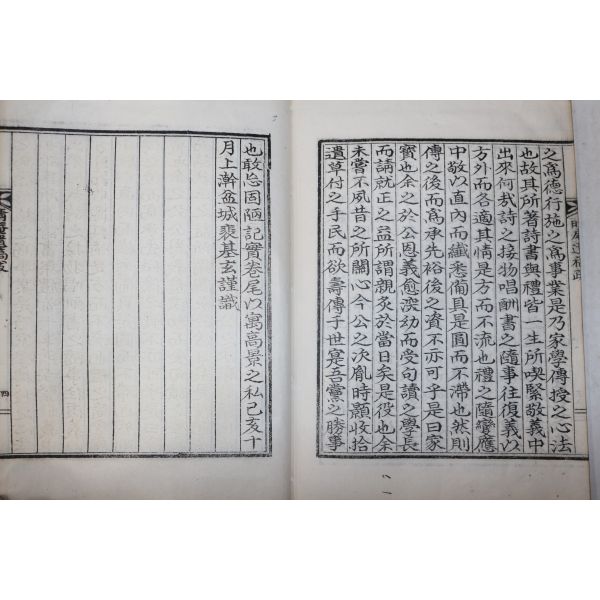 之爲德行施之爲事業是乃家學傳授之心法
也故其所著詩書與禮皆一生所喫緊敬義中
出來何哉詩之接物唱酬書之隨事往復義以
方外而各適其情是方而不流也禮之隨變應
中敬以直內而纖悉備具是圓而不滯也然則
傳之後而爲承先裕後之資不亦可乎是曰家
寶也余之於公恩義愈深幼而受句讀之學長
而請就正之益所謂親炙於當日矣是役也余
未嘗不夙昔之所關心今公之次胤時顯收拾
遺草付之手民而欲壽傳于世寔吾黨之勝事
也敢忘固陋記實卷尾以寓高景之私己亥十
月上澣盆城裵基玄謹識
四